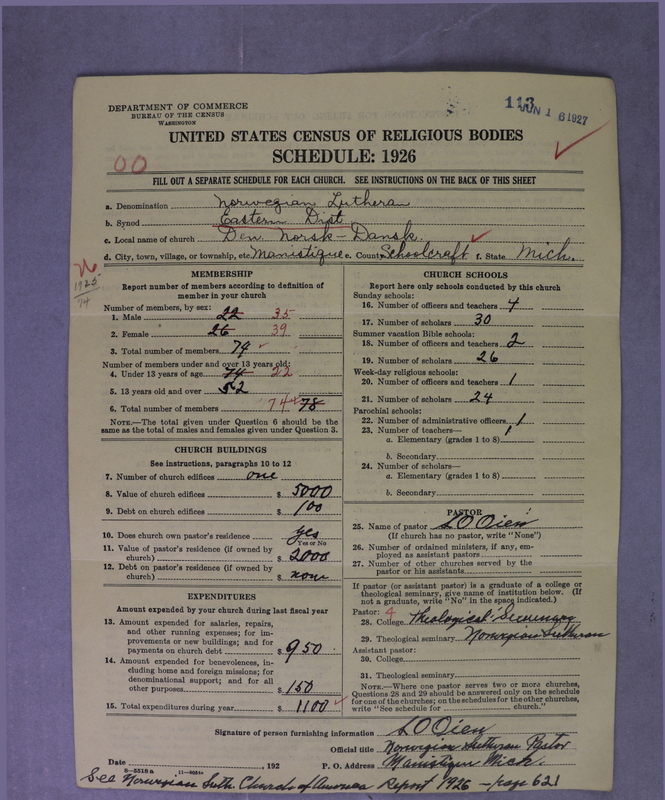 DEPARTMENT OF COMMERCE
BUREAU OF THE CENSUS
WASHINGTON
113
JUN 16 1927
UNITED STATES CENSUS OF RELIGIOUS BODIES
SCHEDULE: 1926
00
FILL OUT A SEPARATE SCHEDULE FOR EACH CHURCH. SEE INSTRUCTIONS ON THE BACK OF THIS SHEET
a. Denomination Norwegian Lutheran
b. Synod Eastern Dist
c. Local name of church Den Norsk-Dansk
d. City, town, village, or township, etc. Manistique e. County Schoolcraft f. State Mich.
1925
74
MEMBERSHIP
Report number of members according to definition of member in your church
Number of members, by sex:
1. Male 22 35
2. Female 26 39
3. Total number of members 74
Number of members under and over 13 years old:
4. Under 13 years of age 74 22
5. 13 years old and over 52
6. Total number of members 74 78
NOTE.—The total given under Question 6 should be the same as the total of males and females given under Question 3.
CHURCH BUILDINGS
See instructions, paragraphs 10 to 12
7. Number of church edifices one
8. Value of church edifices $ 5000
9. Debt on church edifices $ 100
10. Does church own pastor's residence yes
Yes or No
11. Value of pastor's residence (if owned by church) $ 2000
12. Debt on pastor's residence (if owned by church) $ none
EXPENDITURES
Amount expended by your church during last fiscal year
13. Amount expended for salaries, repairs, and other running expenses; for improvements or new buildings; and for payments on church debt $ 950
14. Amount expended for benevolences, including home and foreign missions; for denominational support; and for all other purposes $ 150
15. Total expenditures during year $ 1100
CHURCH SCHOOLS
Report here only schools conducted by this church
Sunday schools:
16. Number of officers and teachers 4
17. Number of scholars 30
Summer vacation Bible schools:
18. Number of officers and teachers 2
19. Number of scholars 26
Week-day religious schools:
20. Number of officers and teachers 1
21. Number of scholars 24
Parochial schools:
22. Number of administrative officers 1
23. Number of teachers— 1
a. Elementary (grades 1 to 8)
b. Secondary
24. Number of scholars—
a. Elementary (grades 1 to 8)
b. Secondary
PASTOR
25. Name of pastor S O Oien
(If church has no pastor, write "None")
26. Number of ordained ministers, if any, employed as assistant pastors
27. Number of other churches served by the pastor or his assistants
If pastor (or assistant pastor) is a graduate of a college or theological seminary, give name of institution below. (If not a graduate, write "No" in the space indicated.)
Pastor: 4
28. College Theological Seminary
29. Theological seminary Norwegian Lutheran
Assistant pastor:
30. College
31. Theological seminary
NOTE.—Where one pastor serves two or more churches, Questions 28 and 29 should be answered only on the schedule for one of the churches; on the schedules for the other churches, write "See schedule for church."
Signature of person furnishing information S O Oien
Official title Norwegian Lutheran Pastor
Date , 192 P. O. Address Manistique Mich.
8—5518a 11—9051
See Norwegian Luth. Church of America Report 1926 — page 621